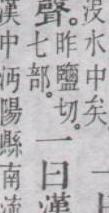 没水中矣
聲。昨鹽切。
七部。
一曰漢
漢中沔陽縣南